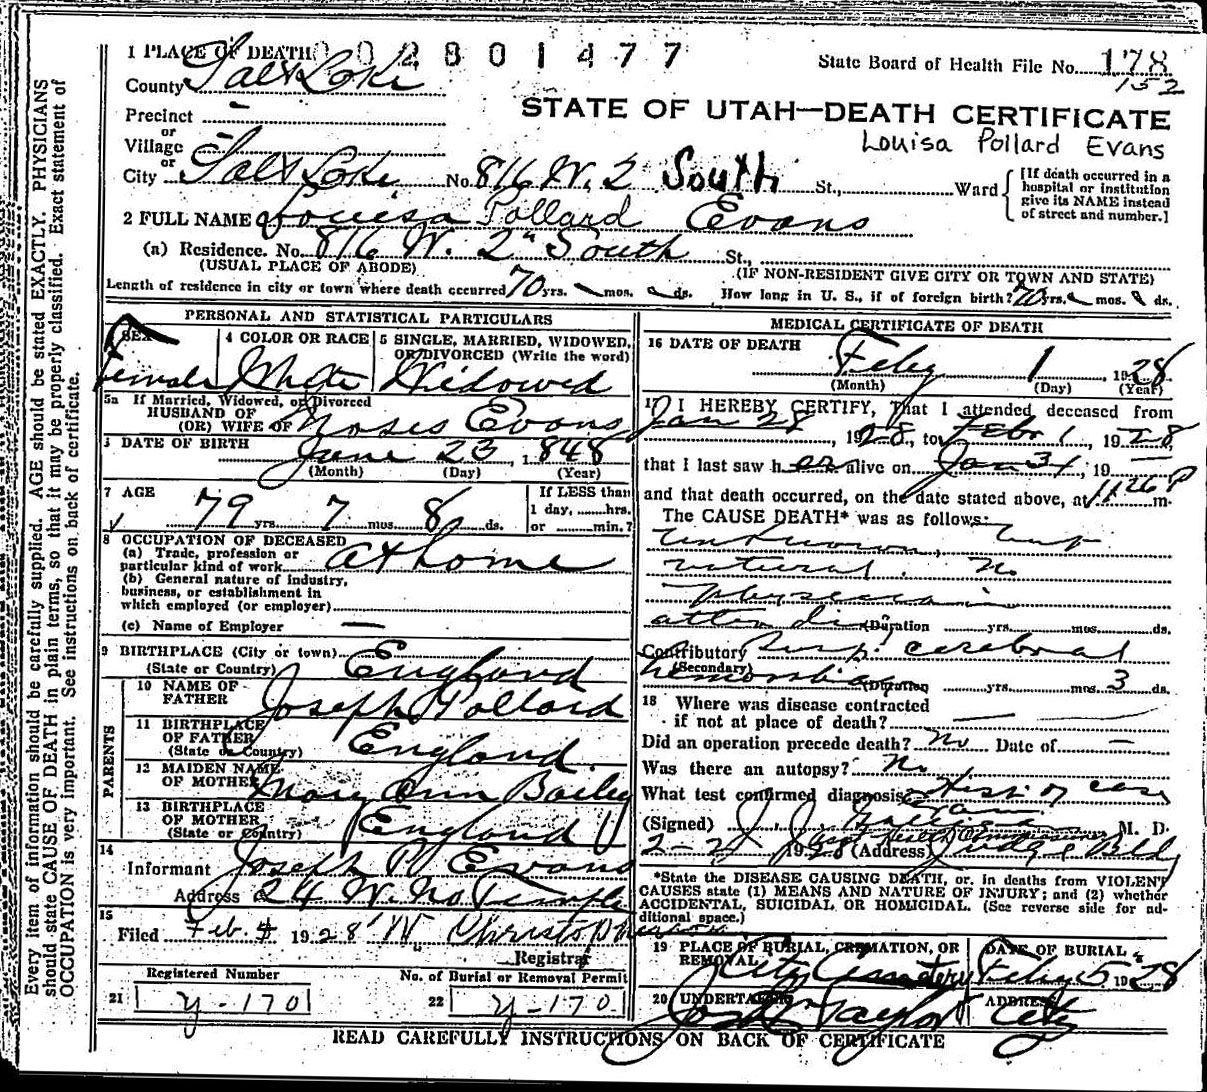 Every item of information should be carefully supplied. AGE should be stated EXACTLY. PHYSICIANS
should state CAUSE OF DEATH in plain terms, so that it may be properly classified. Exact statement of
OCCUPATION is very important. See instructions on back of certificate.
1 PLACE OF DEATH 002801477
State Board of Health File No. 178
152
County Salt Lake
STATE OF UTAH—DEATH CERTIFICATE
Louisa Pollard Evans
Precinct -
or
Village -
or
City Salt Lake No. 816 W. 2 South St., Ward
[If death occurred in a
hospital or institution
give its NAME instead
of street and number.]
2 FULL NAME Louisa Pollard Evans
(a) Residence. No. 816 W. 2" South St.,
(USUAL PLACE OF ABODE)
(IF NON-RESIDENT GIVE CITY OR TOWN AND STATE)
Length of residence in city or town where death occurred 70 yrs. mos. ds. How long in U. S., if of foreign birth? 70 yrs. mos. ds.
PERSONAL AND STATISTICAL PARTICULARS
SEX
Female
4 COLOR OR RACE
White
5 SINGLE, MARRIED, WIDOWED,
OR DIVORCED (Write the word)
Widowed
5a If Married, Widowed, or Divorced
HUSBAND OF
(OR) WIFE OF Moses Evans
DATE OF BIRTH June 23, 1848
(Month) (Day) (Year)
7 AGE
79 yrs. 7 mos. 8 ds.
If LESS than
1 day, hrs.
or min.?
8 OCCUPATION OF DECEASED
(a) Trade, profession or
particular kind of work at home
(b) General nature of industry,
business, or establishment in
which employed (or employer)
(c) Name of Employer —
9 BIRTHPLACE (City or town)
(State or Country) England
PARENTS
10 NAME OF
FATHER Joseph Pollard
11 BIRTHPLACE
OF FATHER
(State or Country) England.
12 MAIDEN NAME
OF MOTHER Mary Ann Bailey
13 BIRTHPLACE
OF MOTHER
(State or Country) England
14
Informant Joseph P. Evans
Address 24 W. No Temple
15
Filed Feb. 4 1928 W Christopherson
Registrar
Registered Number
21 y-170
No. of Burial or Removal Permit
22 y-170
MEDICAL CERTIFICATE OF DEATH
16 DATE OF DEATH
Feby 1, 1928
(Month) (Day) (Year)
17 I HEREBY CERTIFY, That I attended deceased from
Jan 28, 1928, to Feb 1, 1928,
that I last saw her alive on Jan 31, 19 —
and that death occurred, on the date stated above, at 11 26 P m.
The CAUSE DEATH* was as follows:
Unknown,
natural. No
physician
attending
(Duration yrs. mos. ds.
Contributory cerebral
(Secondary)
hemorrhage
(Duration yrs. mos. 3 ds.
18 Where was disease contracted
if not at place of death?
Did an operation precede death? No Date of —
Was there an autopsy? No
What test confirmed diagnosis? History of case
(Signed) M. D.
2-2, 1928 (Address) Judge Bldg
*State the DISEASE CAUSING DEATH, or, in deaths from VIOLENT
CAUSES state (1) MEANS AND NATURE OF INJURY; and (2) whether
ACCIDENTAL, SUICIDAL OR HOMICIDAL. (See reverse side for ad-
ditional space.)
19 PLACE OF BURIAL, CREMATION, OR
REMOVAL
City Cemetery
DATE OF BURIAL
Feby 5 1928
20 UNDERTAKER
Taylor
ADDRESS
City
READ CAREFULLY INSTRUCTIONS ON BACK OF CERTIFICATE